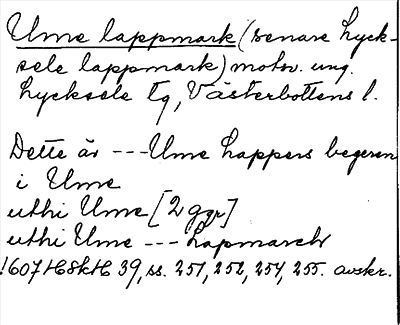 Ume lappmark (senare Lyck-
sele lappmark) motsv. ung.
Lycksele tg, Västerbottens l.
Dette är --- Ume Lappers begeren
i Ume
uthi Ume [2 ggr]
uthi Ume --- Lapmarch
1607 HSkH 39, ss. 251, 252, 254, 255. avskr.